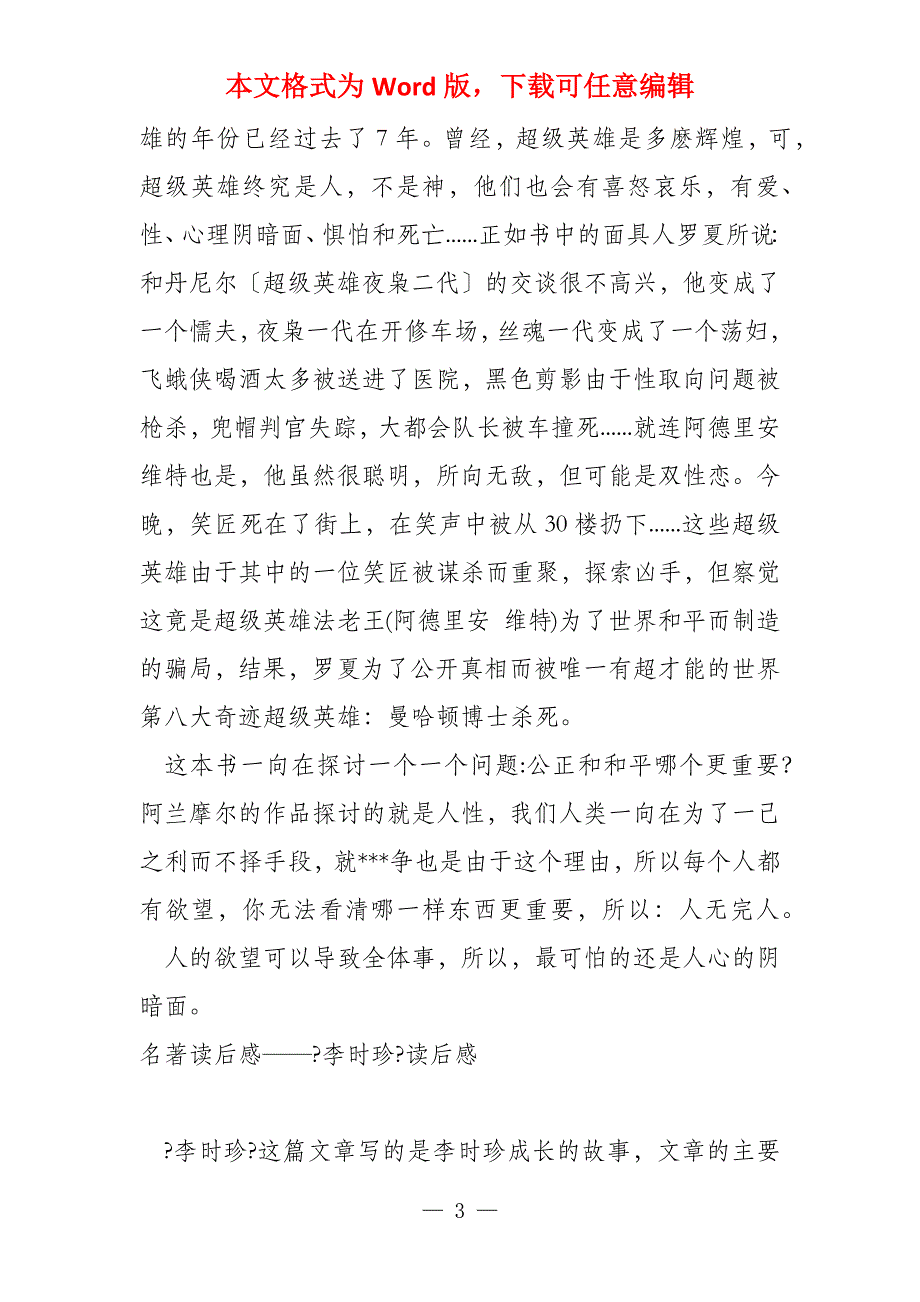 本文格式为 Word 版，下载可任意编辑
雄的年份已经过去了 7 年。曾经，超级英雄是多麽辉煌，可，
超级英雄终究是人，不是神，他们也会有喜怒哀乐，有爱、
性、心理阴暗面、惧怕和死亡......正如书中的面具人罗夏所说:
和丹尼尔〔超级英雄夜枭二代〕的交谈很不高兴，他变成了
一个懦夫，夜枭一代在开修车场，丝魂一代变成了一个荡妇，
飞蛾侠喝酒太多被送进了医院，黑色剪影由于性取向问题被
枪杀，兜帽判官失踪，大都会队长被车撞死......就连阿德里安
维特也是，他虽然很聪明，所向无敌，但可能是双性恋。今
晚，笑匠死在了街上，在笑声中被从 30 楼扔下......这些超级
英雄由于其中的一位笑匠被谋杀而重聚，探索凶手，但察觉
这竟是超级英雄法老王(阿德里安 维特)为了世界和平而制造
的骗局，结果，罗夏为了公开真相而被唯一有超才能的世界
第八大奇迹超级英雄：曼哈顿博士杀死。
这本书一向在探讨一个一个问题:公正和和平哪个更重要?
阿兰摩尔的作品探讨的就是人性，我们人类一向在为了一己
之利而不择手段，就***争也是由于这个理由，所以每个人都
有欲望，你无法看清哪一样东西更重要，所以：人无完人。
人的欲望可以导致全体事，所以，最可怕的还是人心的阴
暗面。
名著读后感——?李时珍?读后感
?李时珍?这篇文章写的是李时珍成长的故事，文章的主要
— 3 —